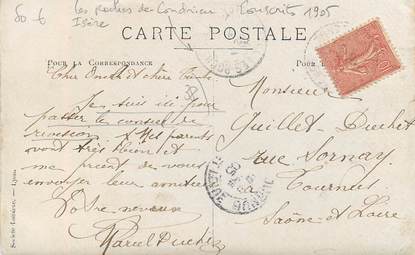 50 6 les roches de Condrieu, Conscrits 1905
Isère
CARTE POSTALE
POUR LA CORRESPONDANCE
POUR L'
Cher Oncle et chère Tante
Je suis ici pour
passer le conseil de
revision. Mes parents
vont très bien et
me prient de vous
envoyer leur amitié
Votre neveu
Marcel Duchet
Monsieur
Guillet-Duchet
rue Sornay
Tournus
Saône et Loire
Société Lumière, — Lyon.
TOURNUS